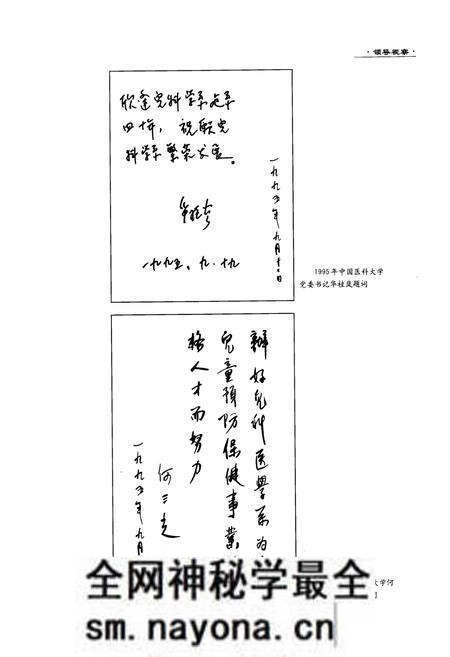 ·领导视察·
欣逢儿科学系建系
四十年，祝愿儿
科学系繁荣发展。
一九九五．九．十九
一九九五年九月十一日
1995年中国医科大学
党委书记华桂茂题词
办好儿科医学系为
儿童预防保健事业
格人才而努力
何三光
一九九五年九月
大学何
全网神秘学最全
sm.nayona.cn